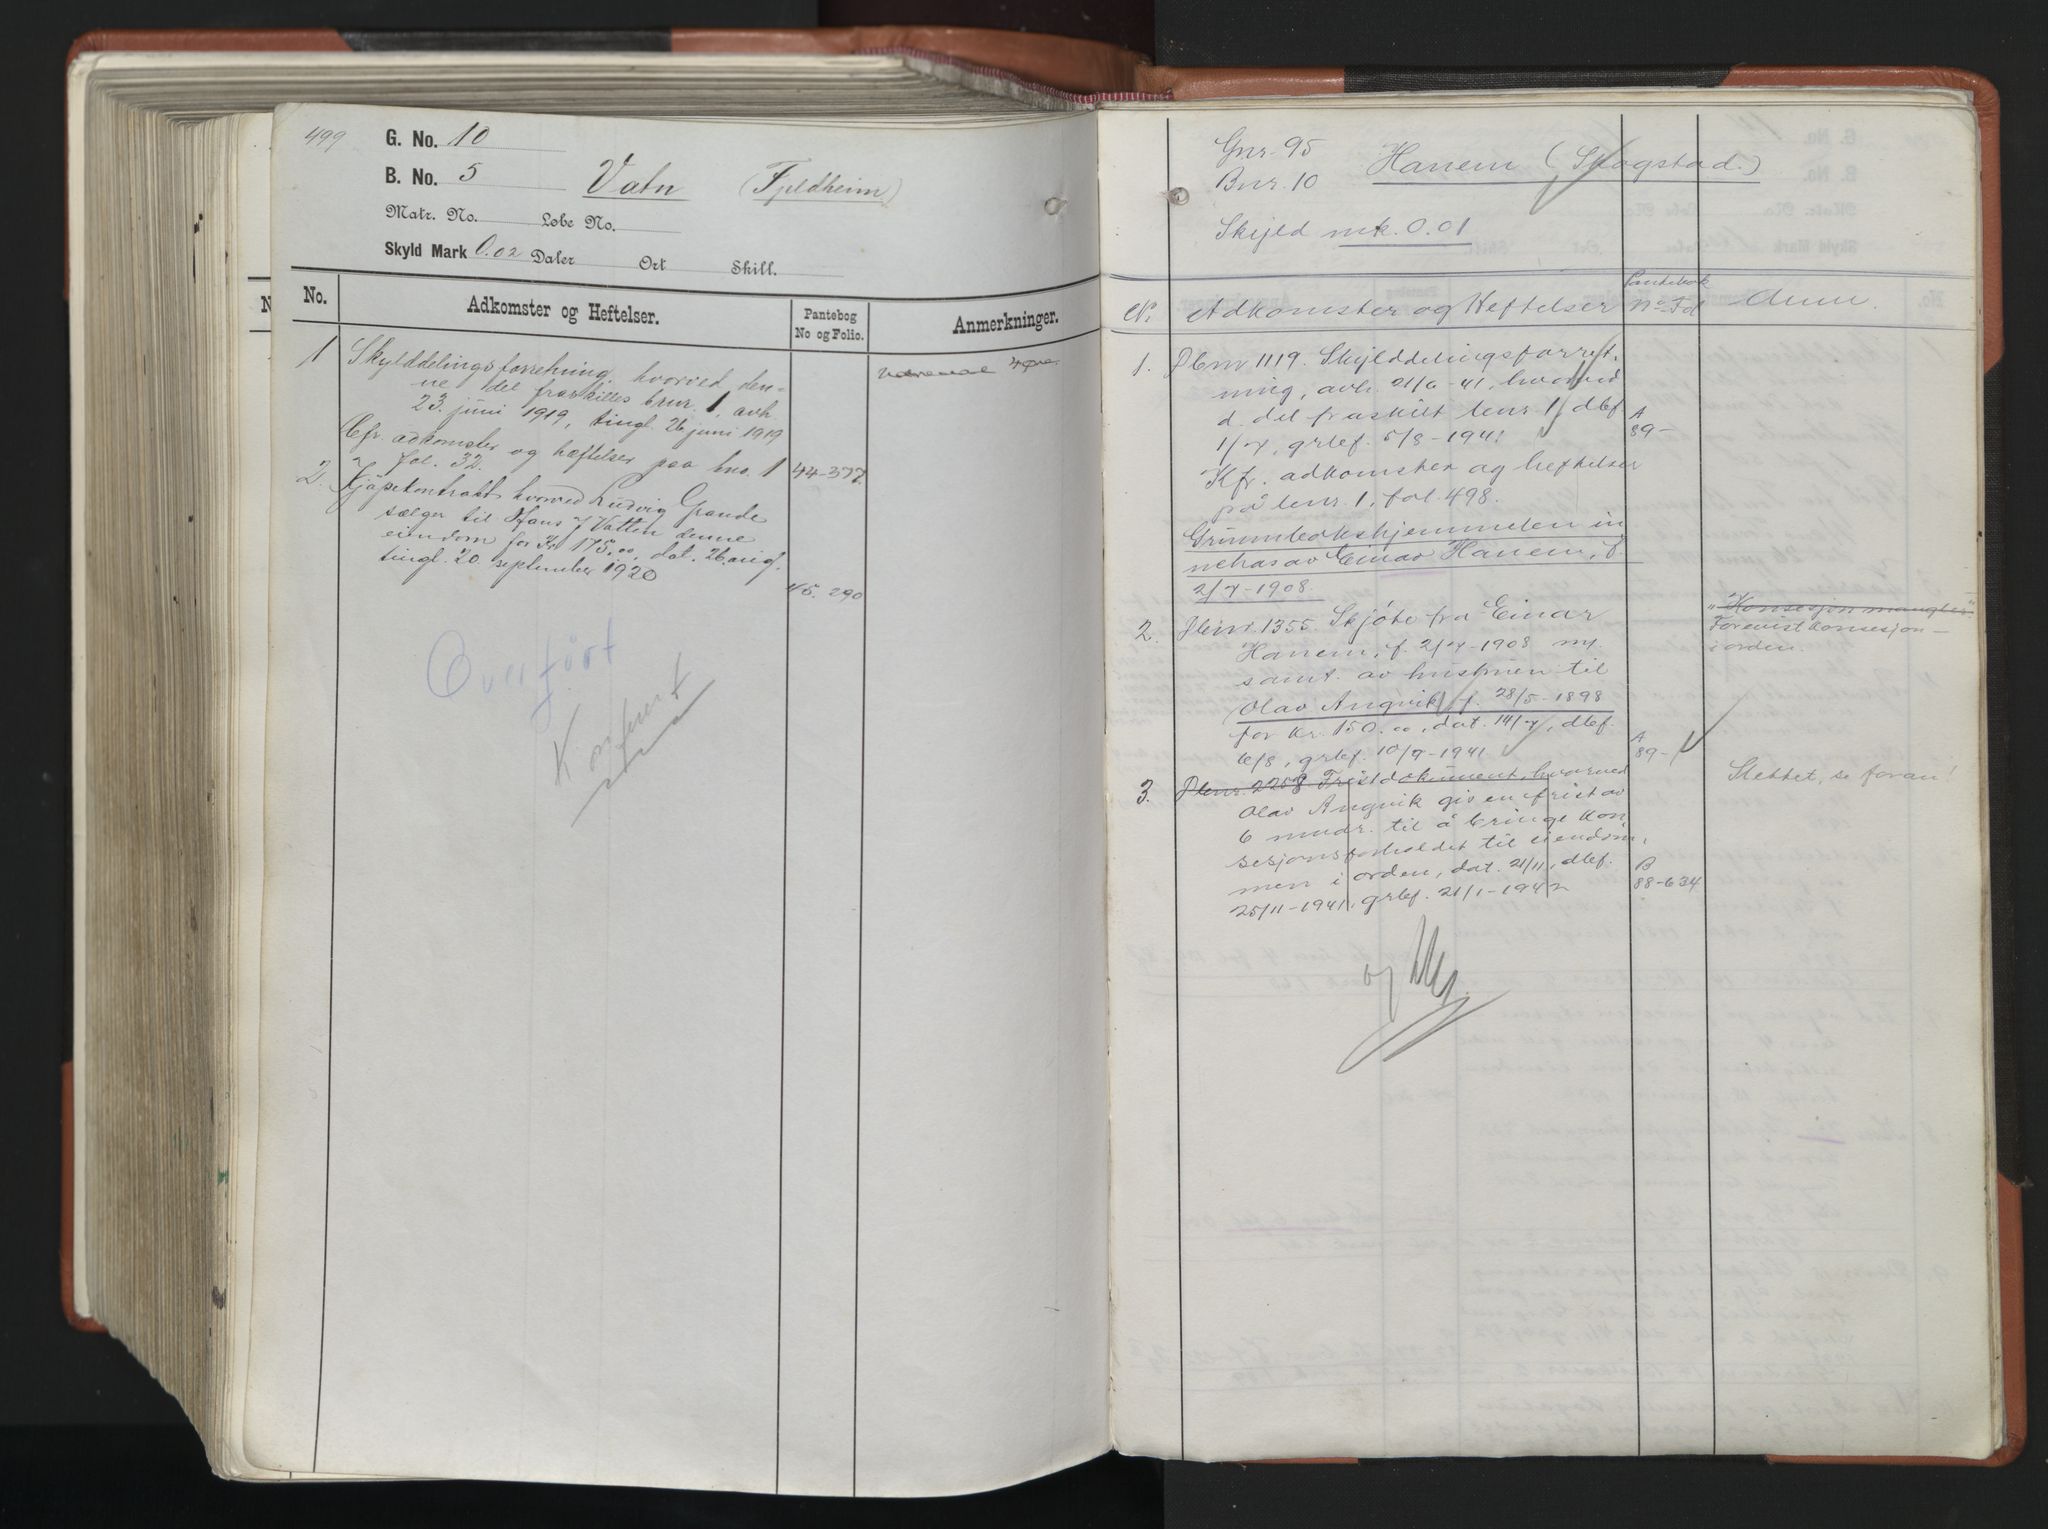 499
G. No. 10
B. No. 5
Vatn (Fjeldheim)
Matr. No. Løbe No.
Skyld Mark 0.02 Daler Ort Skill.
No. Adkomster og Heftelser. Pantebog No og Folio. Anmerkninger.
1 Skylddelingsforretning, hvorved den-
ne del fraskilles bnr. 1, avh.
23. juni 1919, tingl. 26 juni 1919
Cfr. adkomster og hæftelser paa bno. 1
fol. 32. 44-377.
2. Kjøpekontrakt hvorved Ludvig Grande
sælger til Hans J Vatten denne
eiendom for Kr 175.00, dat. 26. aug.
tingl. 20. september 1920
45. 290
Overført
Konfert
Gnr. 95
Bnr. 10
Hanem (Skogstad.)
Skyld mk. 0.01
Nr. Adkomster og Heftelser Pantebok No Fol Anm.
1. Dbnr 1119. Skylddelingsforret-
ning, avh. 21/6-41, hvorved
d. del fraskilt bnr. 1, dbf.
1/7, grbf. 5/8-1941
A
89-
Kfr. adkomster og heftelser
på bnr. 1, fol. 498.
Grunnbokshjemmelen in
nehas av Einar Hanem, f.
2/7-1908.
2. Dbnr. 1355. Skjøte fra Einar
Hanem, f. 2/7-1908 m.
samt. av hustruen til
Olav Angvik f. 28/5-1898
for kr. 150.00, dat. 14/7, dbf.
6/8, grbf. 10/9-1941
A
89-
"Konsesjon mangler"
Forevist konsesjon -
i orden.
3. Dbnr. 2258 Fristdokument, hvorved
Olav Angvik gis en frist av
6 mndr. til å bringe kon-
sesjonsforholdet til eiendom-
men i orden, dat. 21/11, dbf.
25/11-1941, grbf. 21/1-1942
B
88-634
Slettet, se foran!